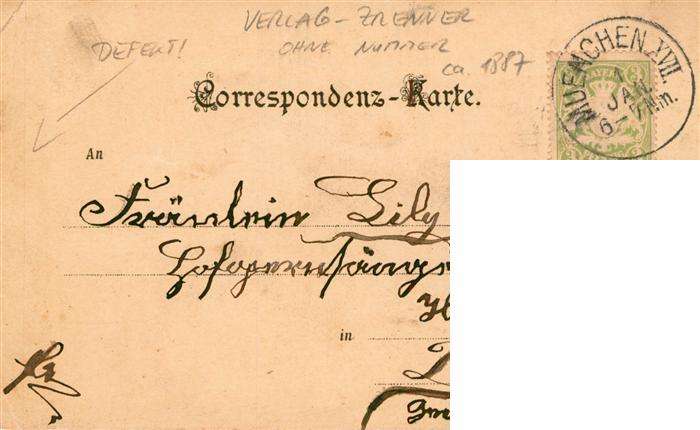 VERLAG-ZRENNER
DEFEKT!
OHNE NUMMER
ca. 1887
MUENCHEN XVII.
1
JAN.
6-7 Nm.
Correspondenz-Karte.
An
Fräulein Lily
Hofopernsänge
in